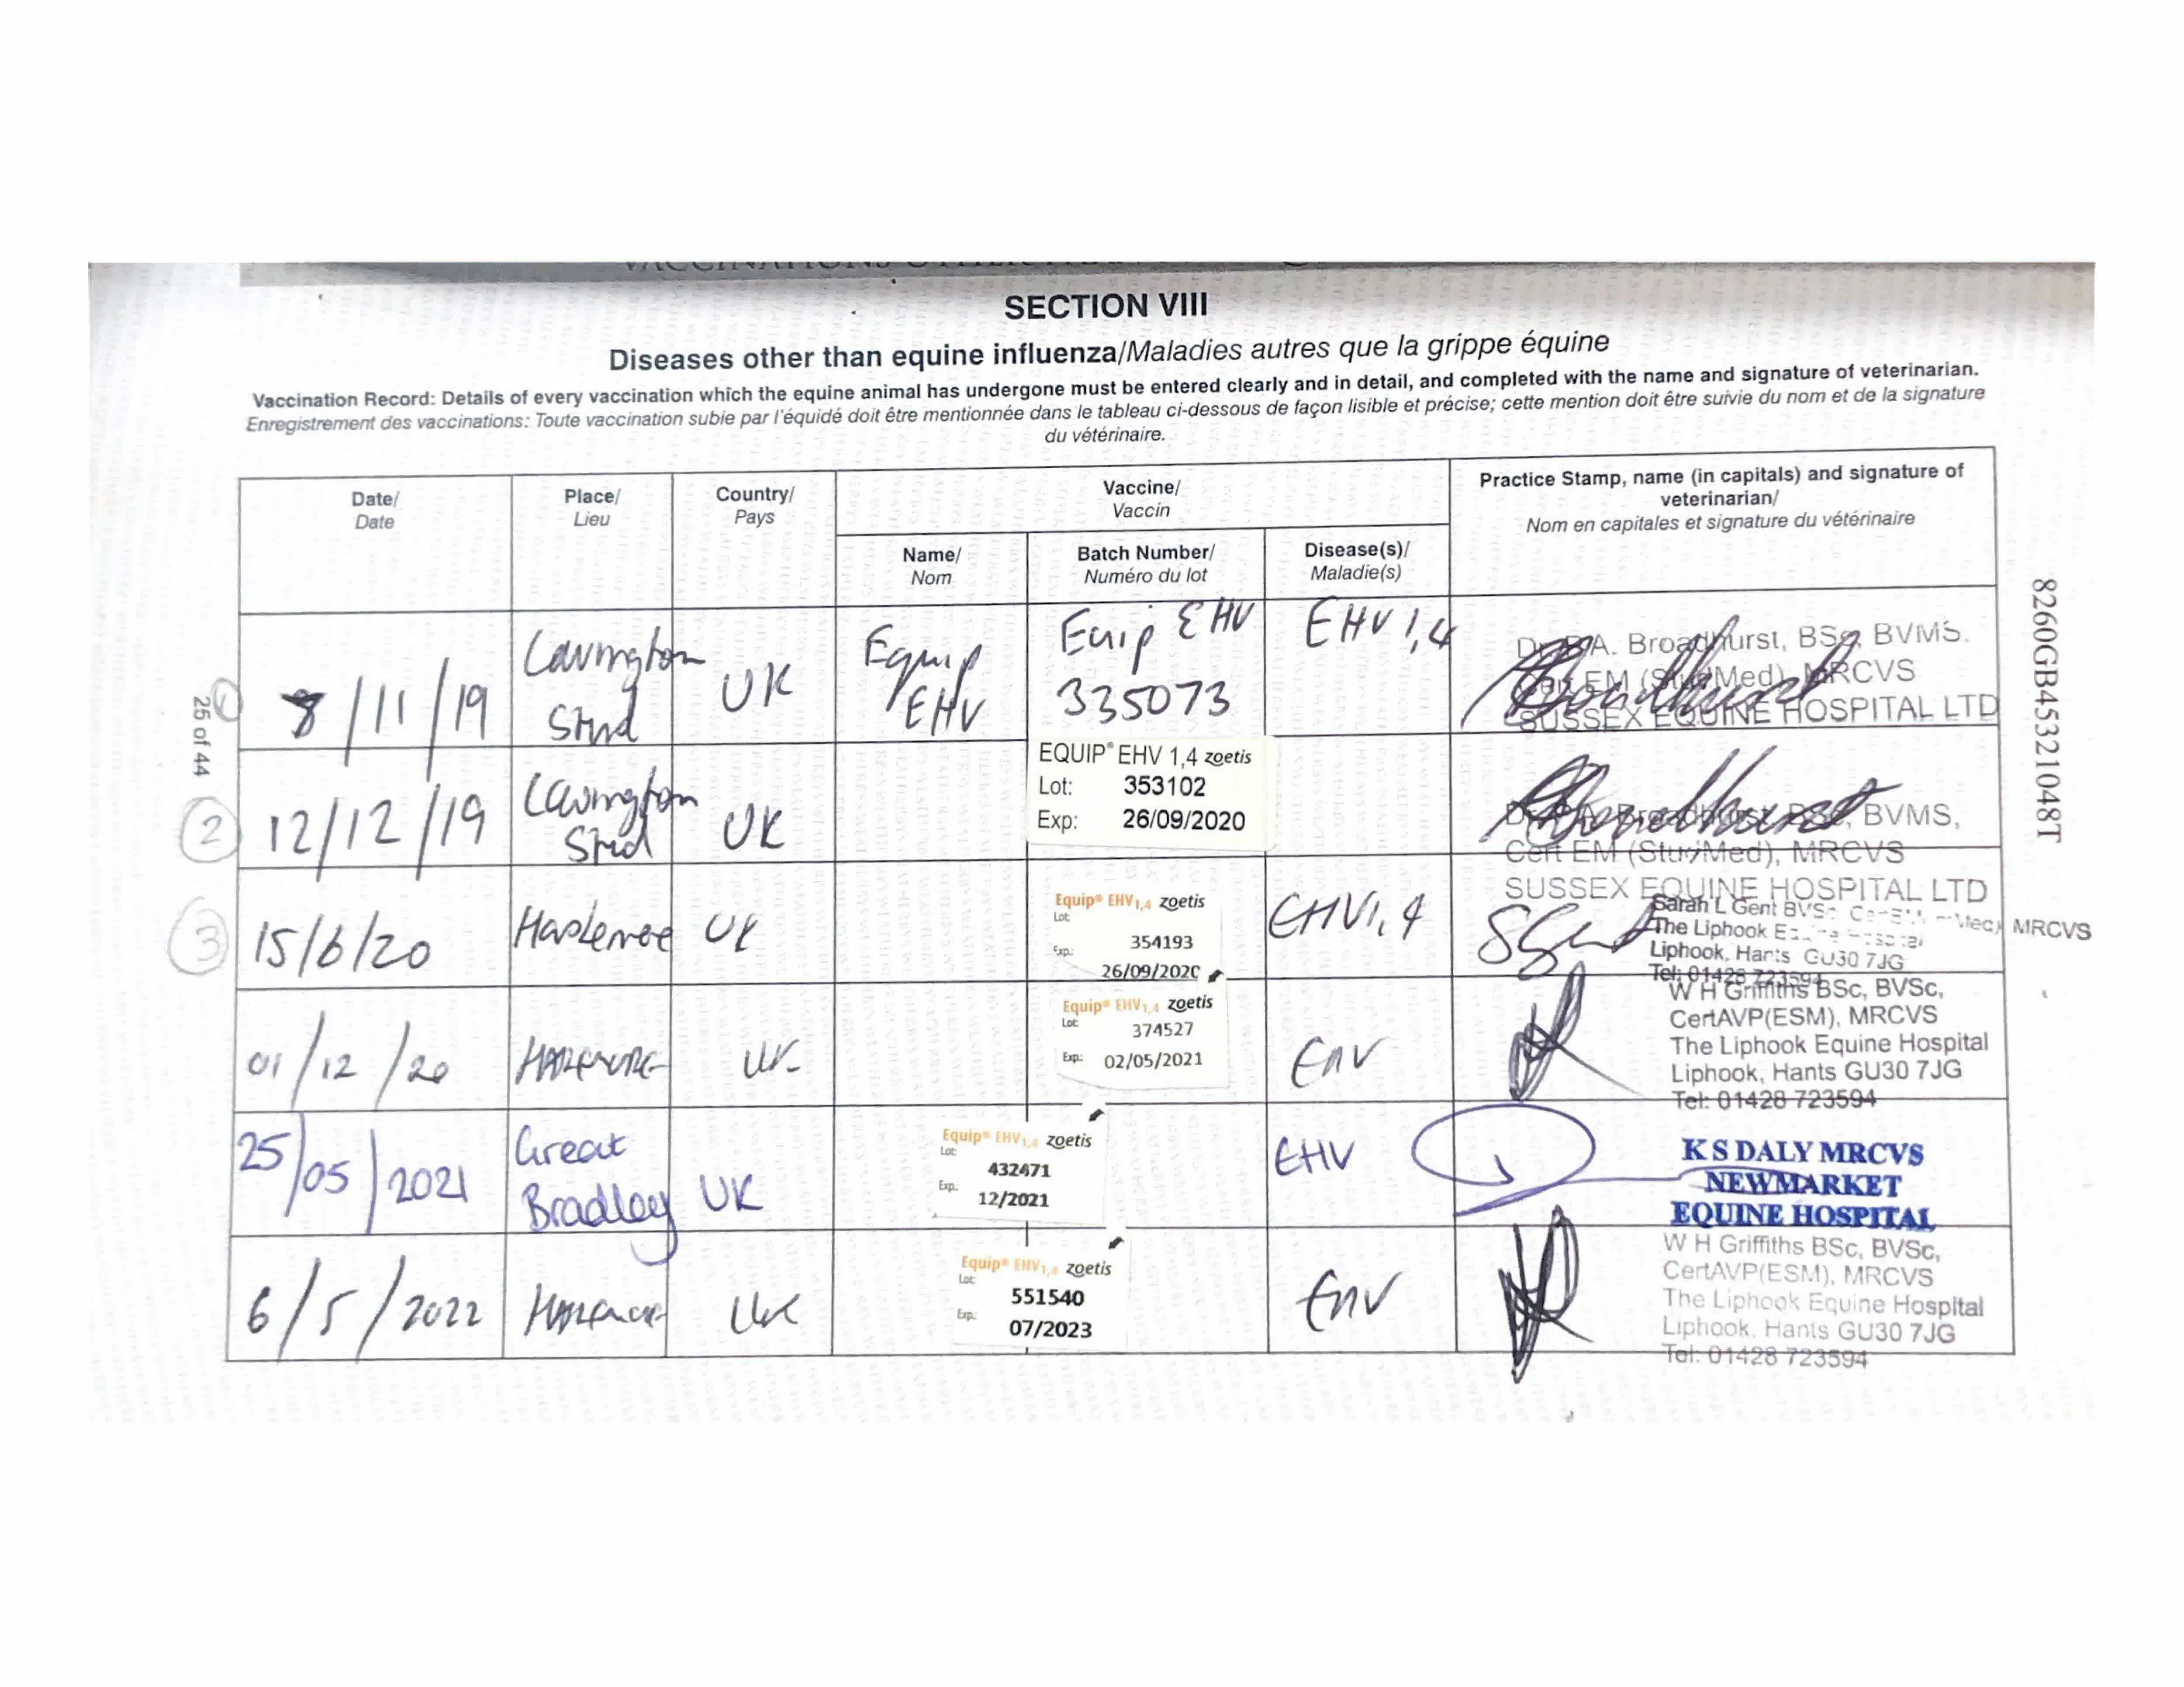 SECTION VIII
Diseases other than equine influenza/Maladies autres que la grippe équine
Vaccination Record: Details of every vaccination which the equine animal has undergone must be entered clearly and in detail, and completed with the name and signature of veterinarian.
Enregistrement des vaccinations: Toute vaccination subie par l'équidé doit être mentionnée dans le tableau ci-dessous de façon lisible et précise; cette mention doit être suivie du nom et de la signature
du vétérinaire.
Date/
Date
Place/
Lieu
Country/
Pays
Vaccine/
Vaccin
Name/
Nom
Batch Number/
Numéro du lot
Disease(s)/
Maladie(s)
Practice Stamp, name (in capitals) and signature of
veterinarian/
Nom en capitales et signature du vétérinaire
1
8/11/19
Lavington
Stud
UK
Equip
EHV
Equip EHV
335073
EHV 1,4
A. Broadhurst, BSc, BVMS.
Cert EM (StudMed), MRCVS
SUSSEX EQUINE HOSPITAL LTD
2
12/12/19
Lavington
Stud
UK
EQUIP® EHV 1,4 zoetis
Lot: 353102
Exp: 26/09/2020
Broadhurst, BSc, BVMS,
Cert EM (StudMed), MRCVS
SUSSEX EQUINE HOSPITAL LTD
3
15/6/20
Haslemere
UK
Equip® EHV1,4 zoetis
Lot:
354193
Exp.:
26/09/2020
EHV1,4
Sarah L Gent BVSc MRCVS
The Liphook Equine Hospital
Liphook, Hants GU30 7JG
Tel: 01428 723594
01/12/20
UK
Equip® EHV1,4 zoetis
Lot:
374527
Exp.: 02/05/2021
EHV
W H Griffiths BSc, BVSc,
CertAVP(ESM), MRCVS
The Liphook Equine Hospital
Liphook, Hants GU30 7JG
Tel: 01428 723594
25/05/2021
Great
Bradley
UK
Equip® EHV1,4 zoetis
Lot:
432471
Exp.
12/2021
EHV
K S DALY MRCVS
NEWMARKET
EQUINE HOSPITAL
6/5/2022
UK
Equip® EHV1,4 zoetis
Lot:
551540
Exp.:
07/2023
EHV
W H Griffiths BSc, BVSc,
CertAVP(ESM), MRCVS
The Liphook Equine Hospital
Liphook, Hants GU30 7JG
Tel: 01428 723594
25 of 44
8260GB45321048T